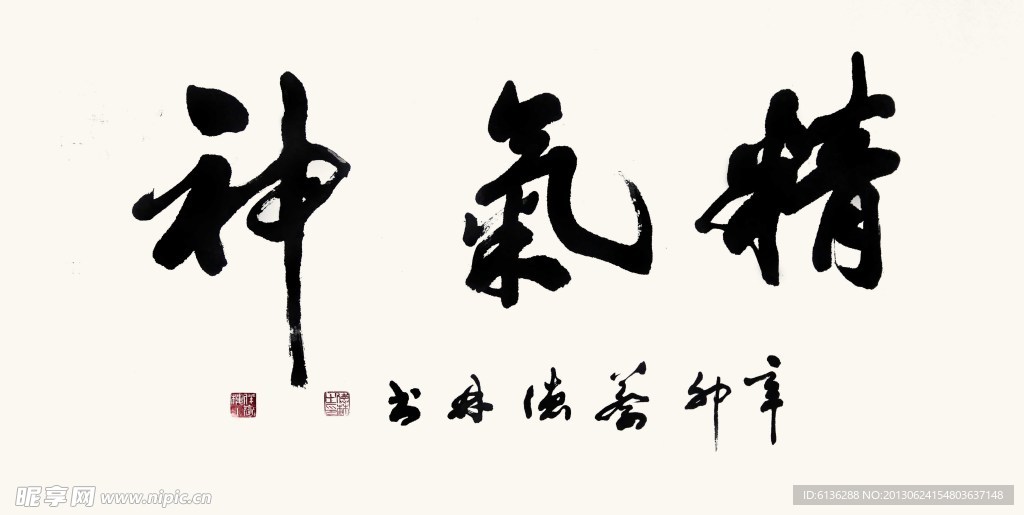 精氣神
辛卯蔡德林书
昵享网 www.nipic.cn
ID:6136288 NO:20130624154803637148